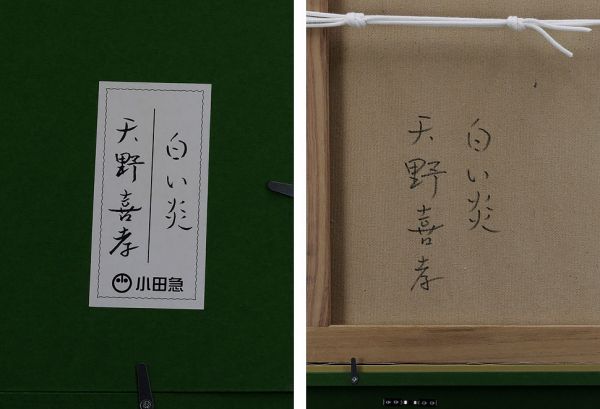 白い炎
天野喜孝
小田急
白い炎
天野喜孝